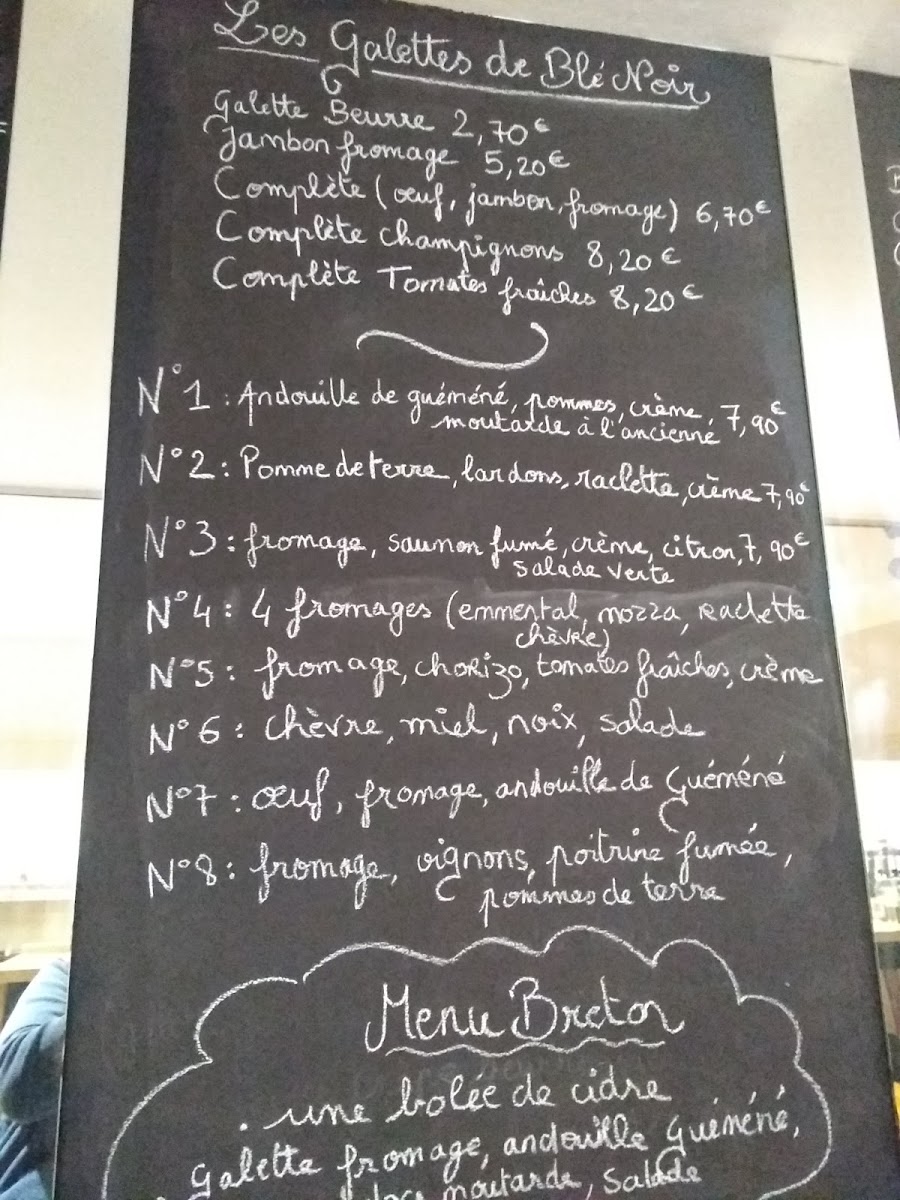 Les Galettes de Blé Noir
Galette Beurre 2,70€
Jambon fromage 5,20€
Complète (œuf, jambon, fromage) 6,70€
Complète champignons 8,20€
Complète Tomates fraîches 8,20€
N°1 : Andouille de guéméné, pommes, crème, 7,90€
moutarde à l'ancienné
N°2 : Pomme de terre, lardons, raclette, crème 7,90€
N°3 : fromage, saumon fumé, crème, citron, 7,90€
salade verte
N°4 : 4 fromages (emmental, mozza, raclette
chèvre)
N°5 : fromage, chorizo, tomates fraîches, crème
N°6 : chèvre, miel, noix, salade
N°7 : œuf, fromage, andouille de Guéméné
N°8 : fromage, oignons, poitrine fumée,
pommes de terre
Menu Breton
. une bolée de cidre
. Galette fromage, andouille Guéméné,
moutarde, Salade